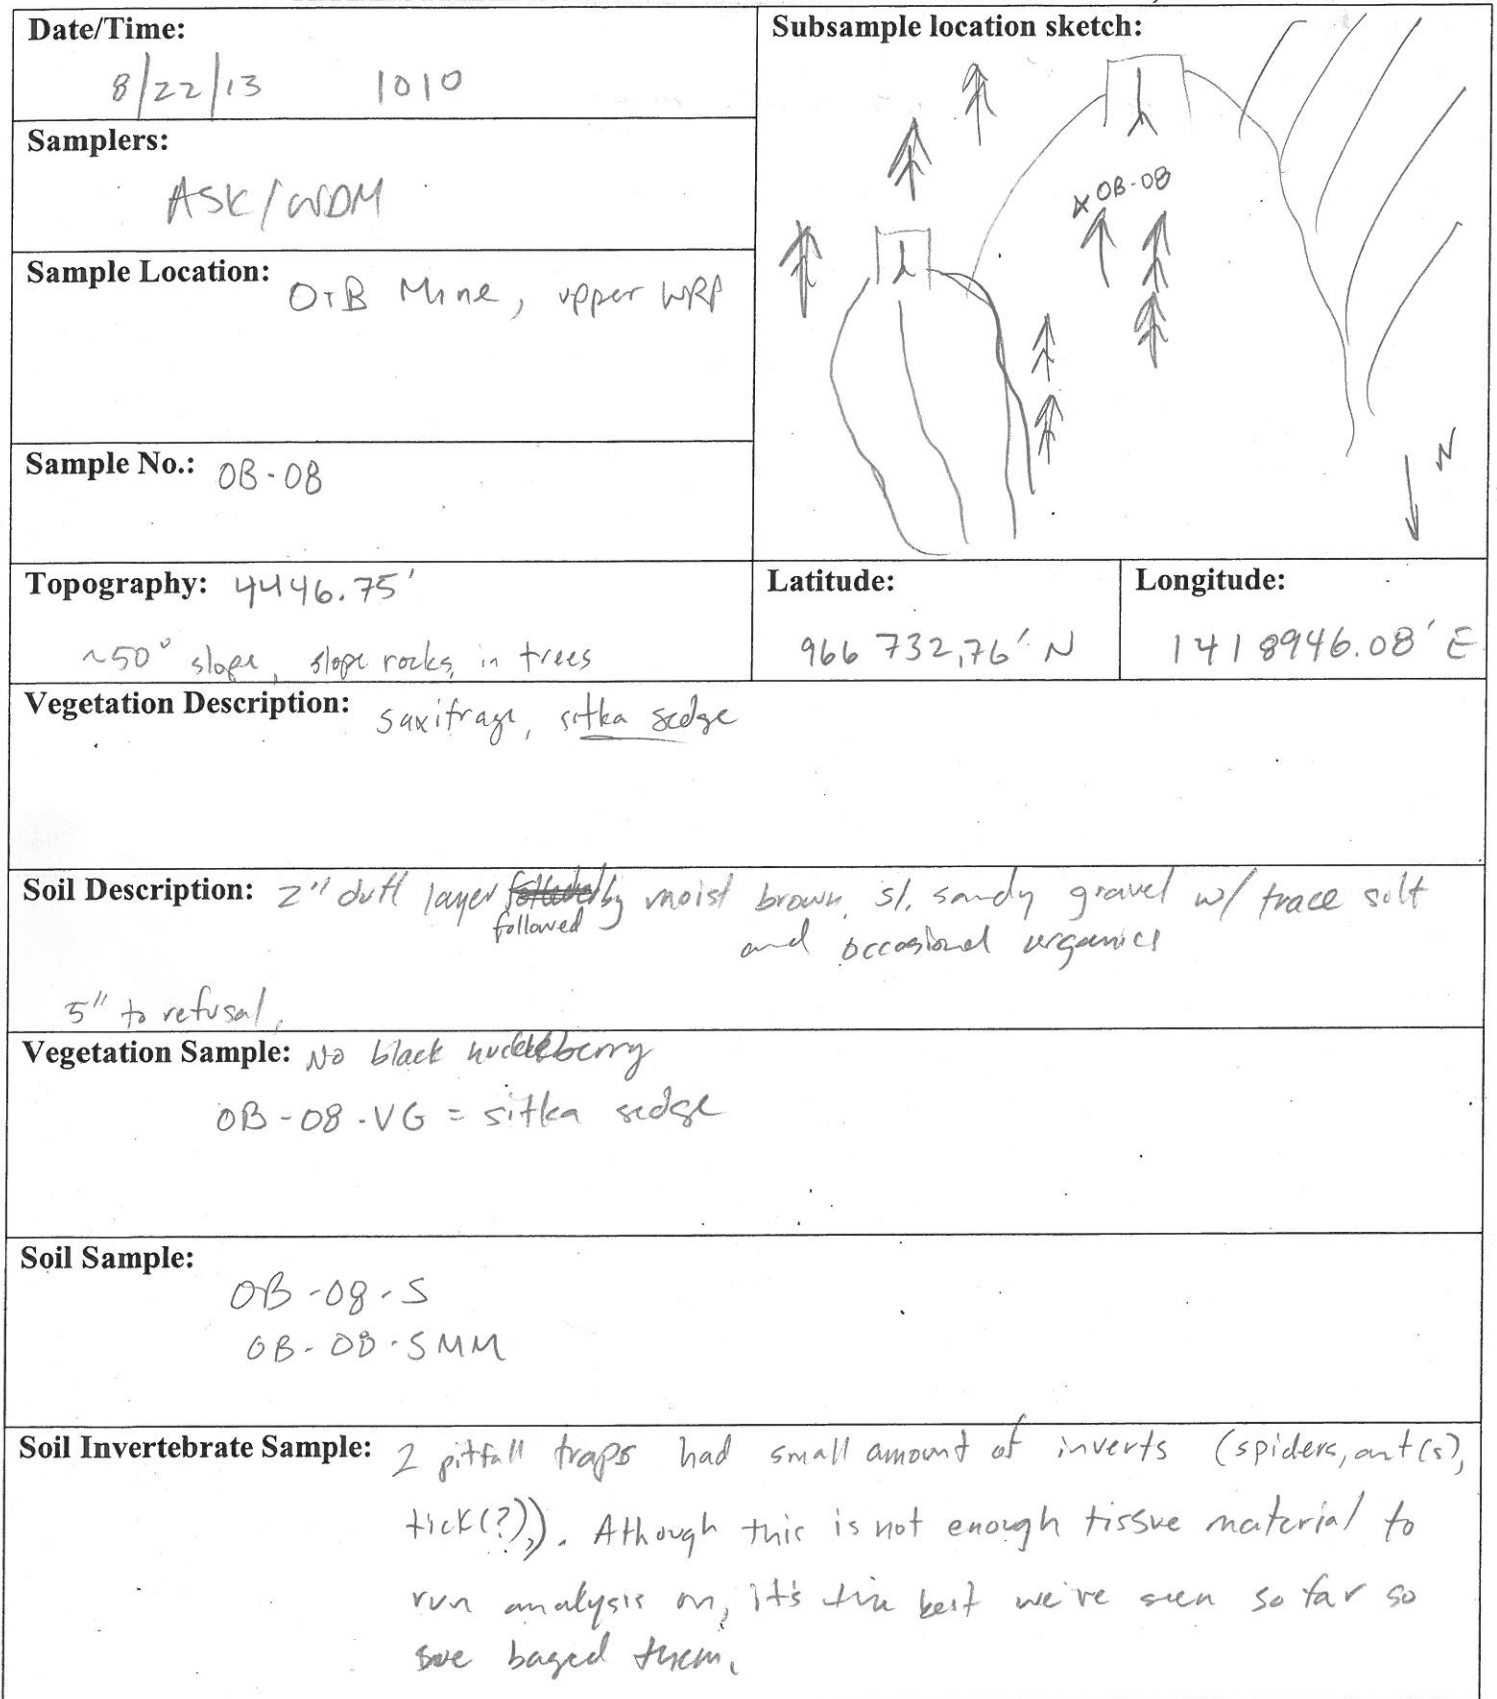 Date/Time:
8/22/13 1010
Samplers:
ASK/WDM
Sample Location: O+B Mine, upper WRP
Sample No.: OB-08
Subsample location sketch:
x OB-08
N
Topography: 4446.75'
~50° slope, slope rocks, in trees
Latitude:
966 732.76' N
Longitude:
1418946.08' E
Vegetation Description: saxifrage, sitka sedge
Soil Description: 2" duff layer by moist brown, sl. sandy gravel w/ trace silt
followed
and occasional organics
5" to refusal.
Vegetation Sample: No black huckleberry
OB-08-VG = sitka sedge
Soil Sample:
OB-08-S
OB-08-SMM
Soil Invertebrate Sample: 2 pitfall traps had small amount of inverts (spiders, ant(s),
tick(?)). Athough this is not enough tissue material to
run analysis on, it's the best we've seen so far so
we baged them.